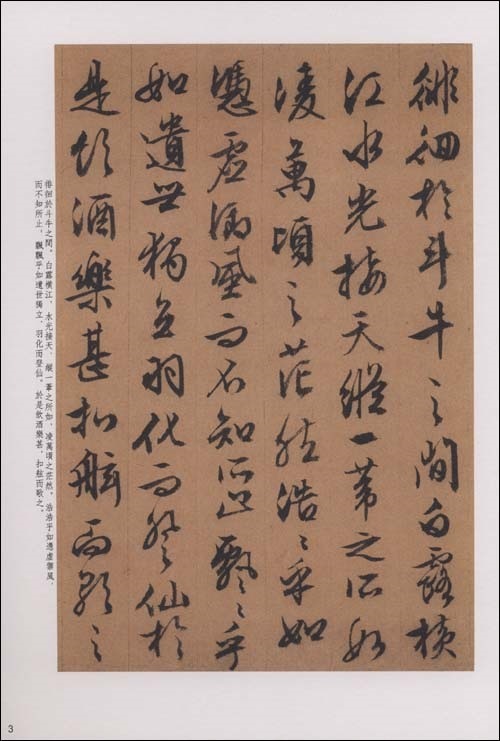 徘徊於斗牛之間白露橫
江水光接天縱一葦之所如
凌萬頃之茫然浩〻乎如
憑虛御風而不知所止飄〻乎
如遺世獨立羽化而登仙於
是飲酒樂甚扣舷而歌之
徘徊於斗牛之間，白露橫江，水光接天。縱一葦之所如，凌萬頃之茫然。浩浩乎如憑虛御風，
而不知所止，飄飄乎如遺世獨立，羽化而登仙。於是飲酒樂甚，扣舷而歌之。
3